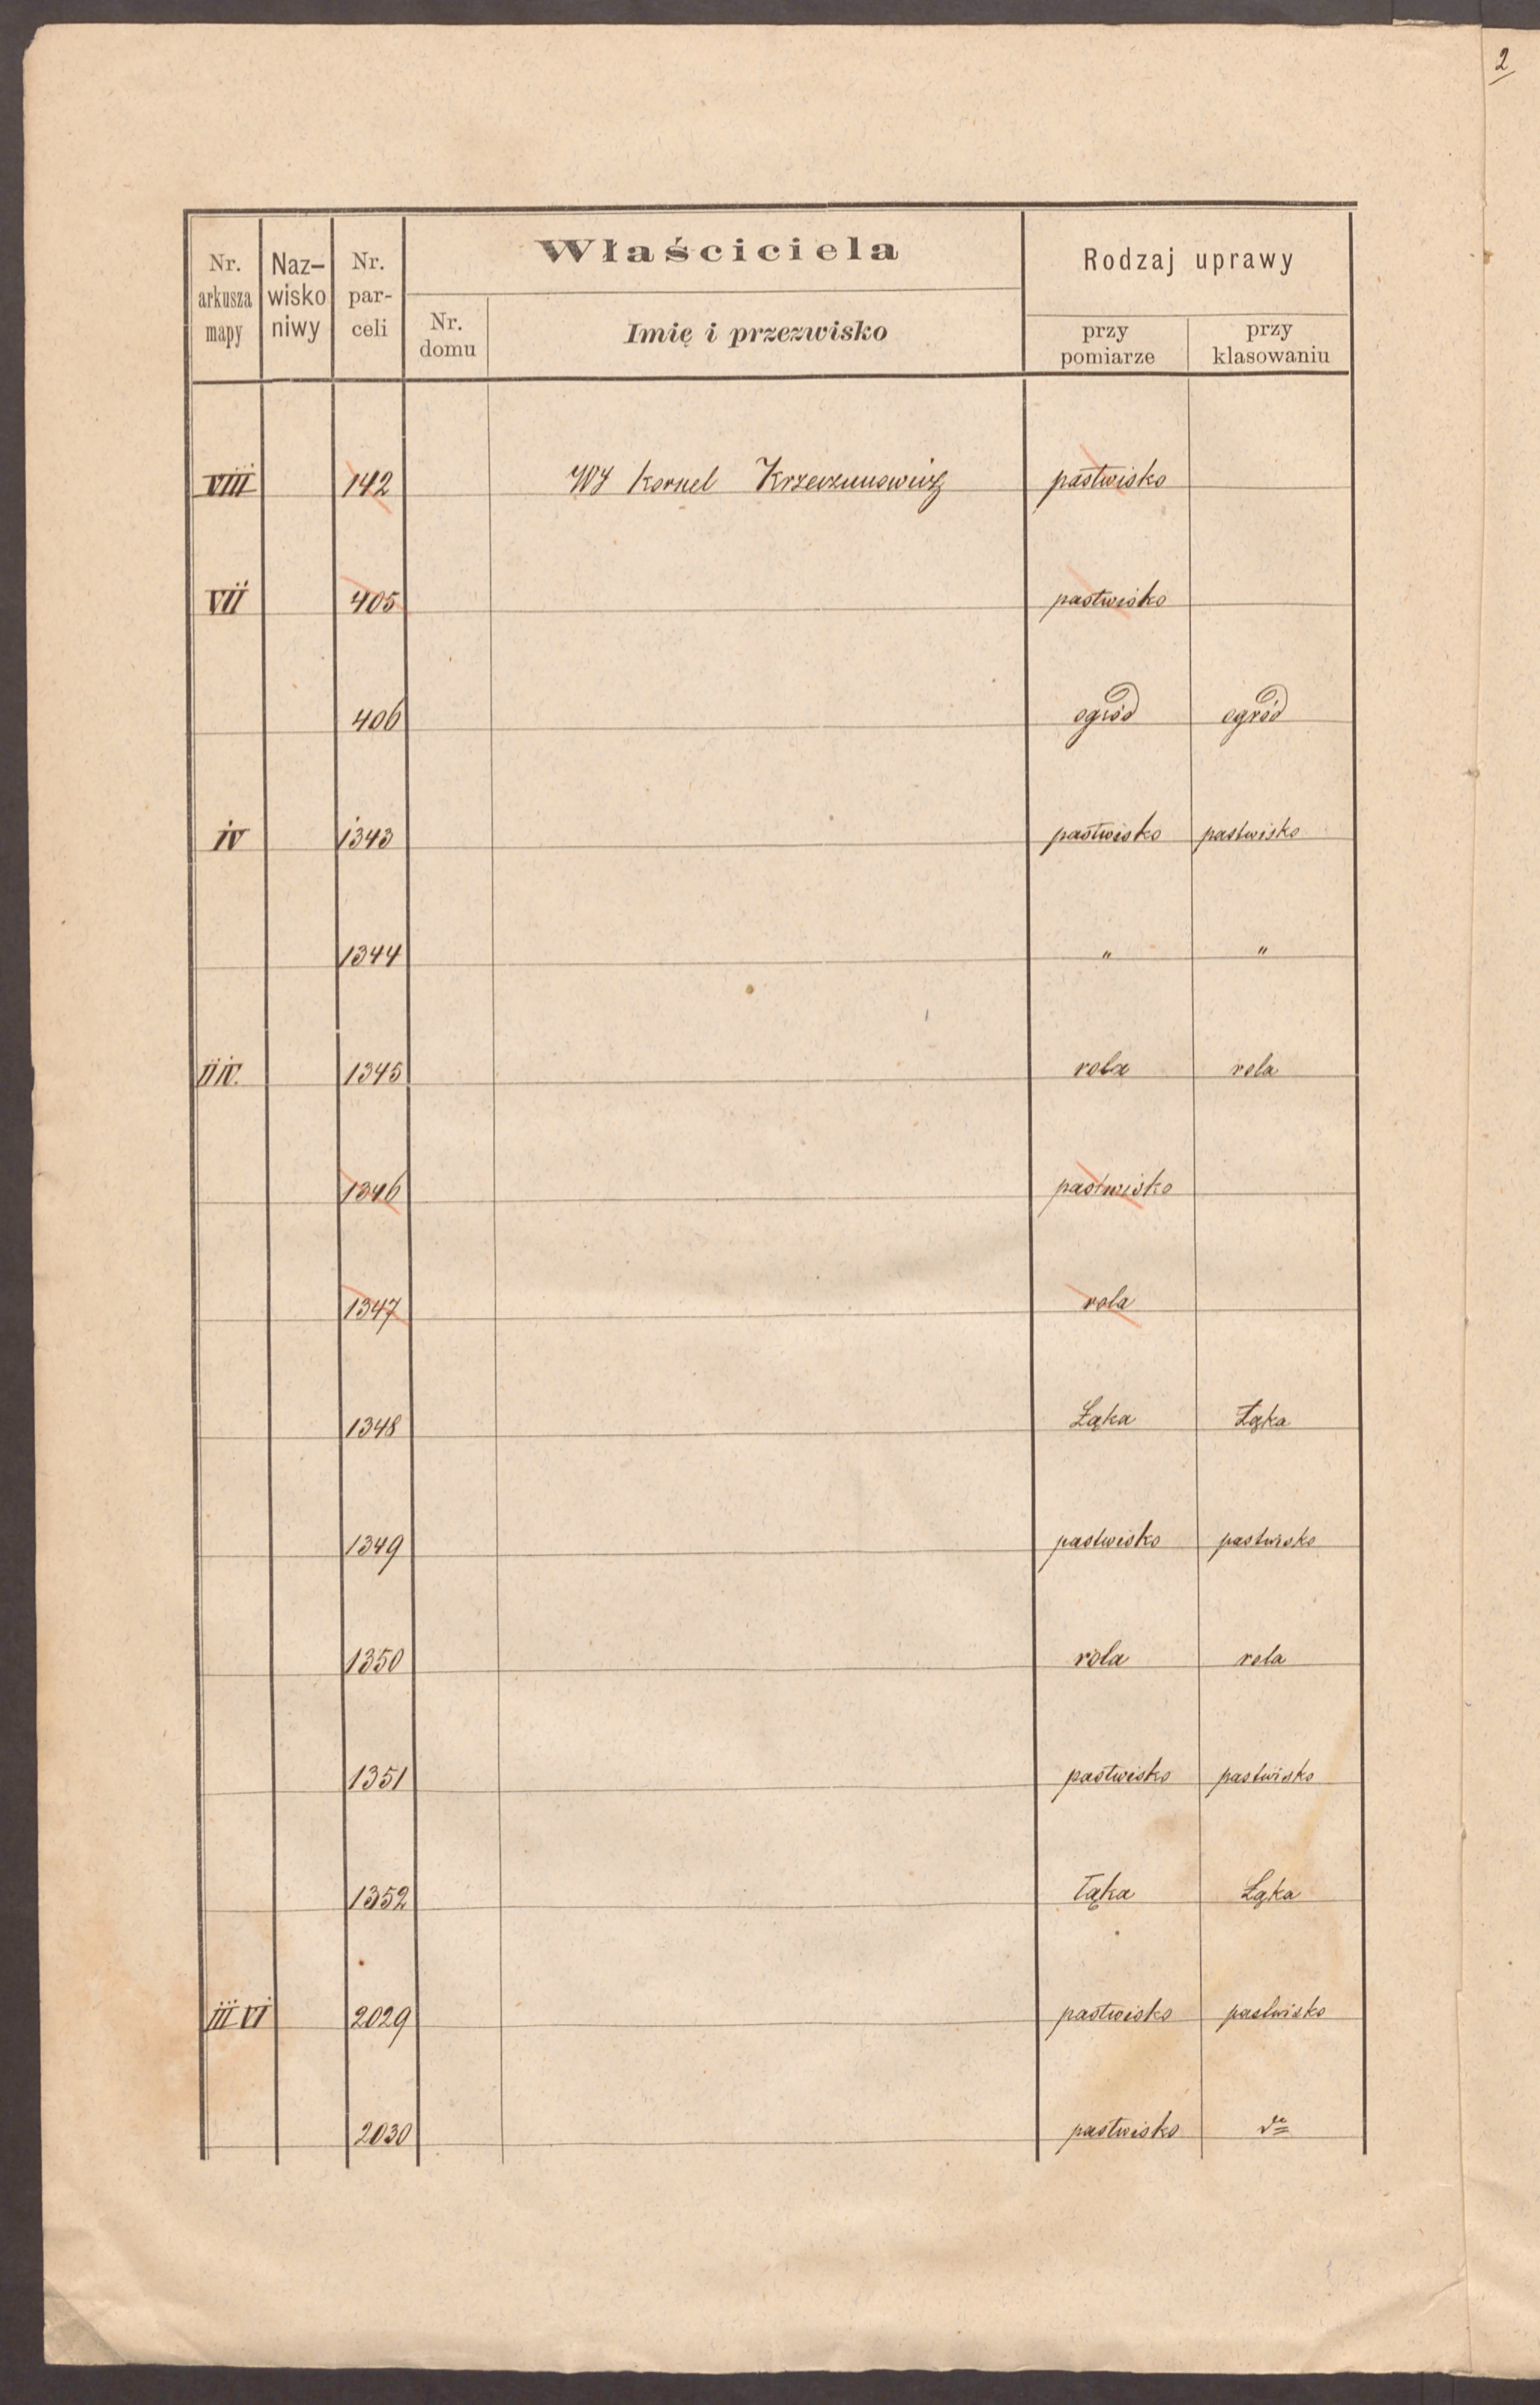 2
Właściciela
Rodzaj uprawy
Nr. arkusza mapy
Naz- wisko niwy
Nr. par- celi
Nr. domu
Imię i przezwisko
przy pomiarze
przy klasowaniu
VIII 142 WJ Kornel Krzeczunowicz pastwisko
VII 405 pastwisko
406 ogród ogród
IV 1343 pastwisko pastwisko
1344 " "
II IV. 1345 rola rola
1346 pastwisko
1347 rola
1348 Łąka Łąka
1349 pastwisko pastwisko
1350 rola rola
1351 pastwisko pastwisko
1352 łąka Łąka
III VI 2029 pastwisko pastwisko
2030 pastwisko dto